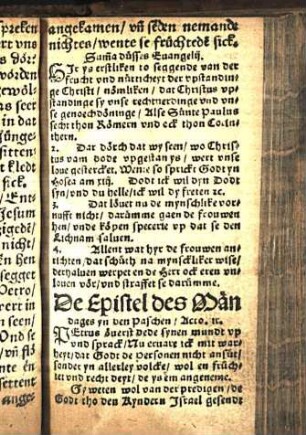 angekamen / vñ seden nemande
nichtes / wente se früchtedē sick.
Suma düsses Euangelij.
Hir ys erstliken to seggende van der
frucht vnd nütticheyt der vpstandin-
ge Christi / nömliken / dat Christus vp-
standinge sy vnse rechtuerdinge vnd vn-
se genoechdöninge / Alse Sünte Paulus
secht thon Römern vnd eck thon Co.in-
thern.
2. Dat dörch dat wy seen / wo Chris-
tus vam dode vpgestan ys / wert vnse
loue gestercket. Wente so spricht Godt yn
Hosea am xiij. Dodt ick wil dyn Dodt
syn / ond du helle / ick wil dy freten ꝛc.
3. Dat louet nu de mynschlike vor-
nufft nicht / darümme gaen de frouwen
hen / vnde köpen specerie vp dat se den
Lichnam saluen.
4. Allent wat hyr de frouwen an-
richten / dat schüth na mynschliker wise/
derhaluen werpet en de Herr ock eren vn-
louen vör / vnd straffet se darümme.
De Epistel des Män
dages yn den Paschen / Acto. x.
PEtrus öuerst dede synen mundt vp
vnd sprack / Nu eruare ick mit war-
heyt / dat Godt de Personen nicht ansüt/
sonder yn allerley volcke / wol en früch-
tet vnd recht deyt / de ys em angeneme.
Gy weten wol van der predigen / de
Godt tho den Kyndern Israel gesendt